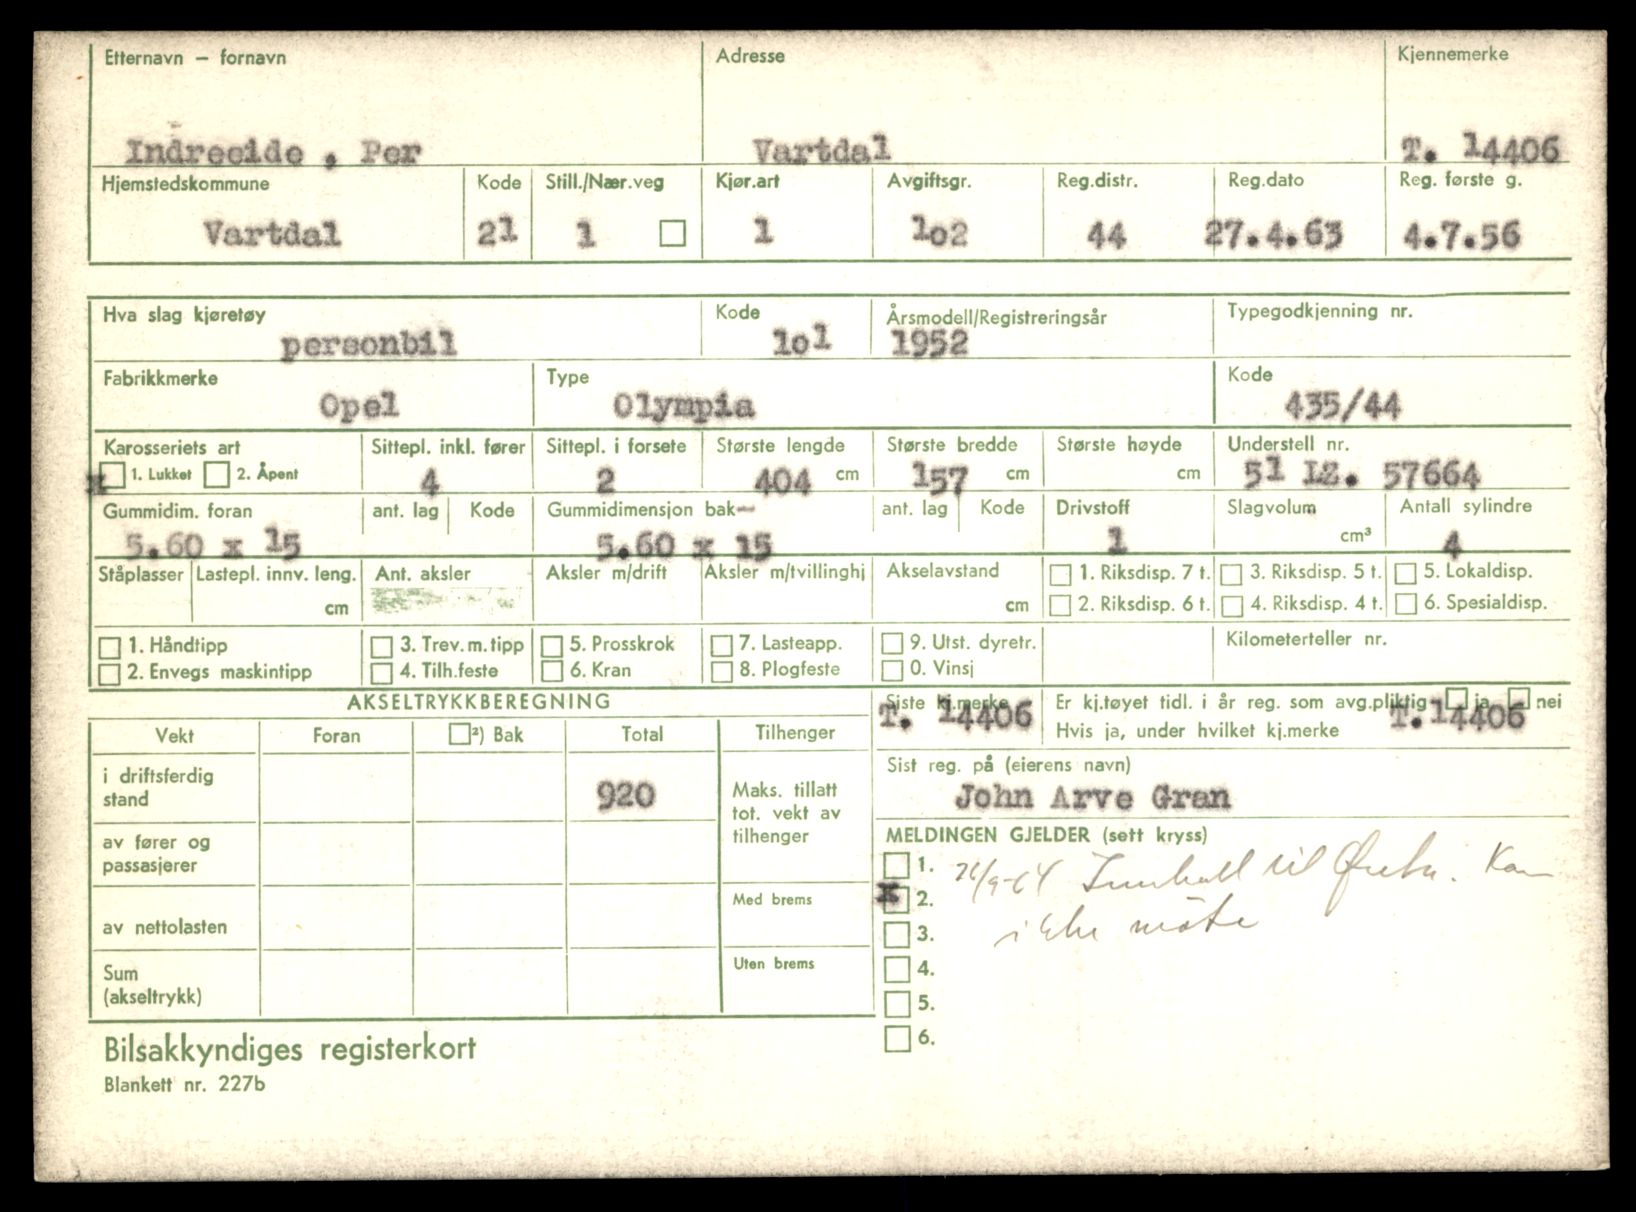 Etternavn – fornavn Adresse Kjennemerke
Indreeide , Per Vartdal T. 14406
Hjemstedskommune Kode Still./Nær.veg Kjør.art Avgiftsgr. Reg.distr. Reg.dato Reg. første g.
Vartdal 21 1 1 1o2 44 27.4.63 4.7.56
Hva slag kjøretøy Kode Årsmodell/Registreringsår Typegodkjenning nr.
personbil 1o1 1952
Fabrikkmerke Type Kode
Opel Olympia 435/44
Karosseriets art Sittepl. inkl. fører Sittepl. i forsete Største lengde Største bredde Største høyde Understell nr.
x 1. Lukket 2. Åpent 4 2 404 cm 157 cm cm 51 LZ. 57664
Gummidim. foran ant. lag Kode Gummidimensjon bak ant. lag Kode Drivstoff Slagvolum Antall sylindre
5.60 x 15 5.60 x 15 1 cm³ 4
Ståplasser Lastepl. innv. leng. Ant. aksler Aksler m/drift Aksler m/tvillinghj Akselavstand 1. Riksdisp. 7 t. 3. Riksdisp. 5 t. 5. Lokaldisp.
cm cm 2. Riksdisp. 6 t. 4. Riksdisp. 4 t. 6. Spesialdisp.
1. Håndtipp 3. Trev. m. tipp 5. Prosskrok 7. Lasteapp. 9. Utst. dyretr. Kilometerteller nr.
2. Envegs maskintipp 4. Tilh.feste 6. Kran 8. Plogfeste 0. Vinsj
AKSELTRYKKBEREGNING Siste kj.merke Er kj.tøyet tidl. i år reg. som avg.pliktig ja nei
T. 14406 T.14406
Vekt Foran ²) Bak Total Tilhenger Hvis ja, under hvilket kj.merke
i driftsferdig stand 920 Maks. tillatt tot. vekt av tilhenger Sist reg. på (eierens navn)
John Arve Gran
av fører og passasjerer MELDINGEN GJELDER (sett kryss)
1. til Ørsta. Kan
Med brems x 2.
av nettolasten 3. ikke møte
Sum (akseltrykk) Uten brems 4.
5.
6.
Bilsakkyndiges registerkort
Blankett nr. 227b